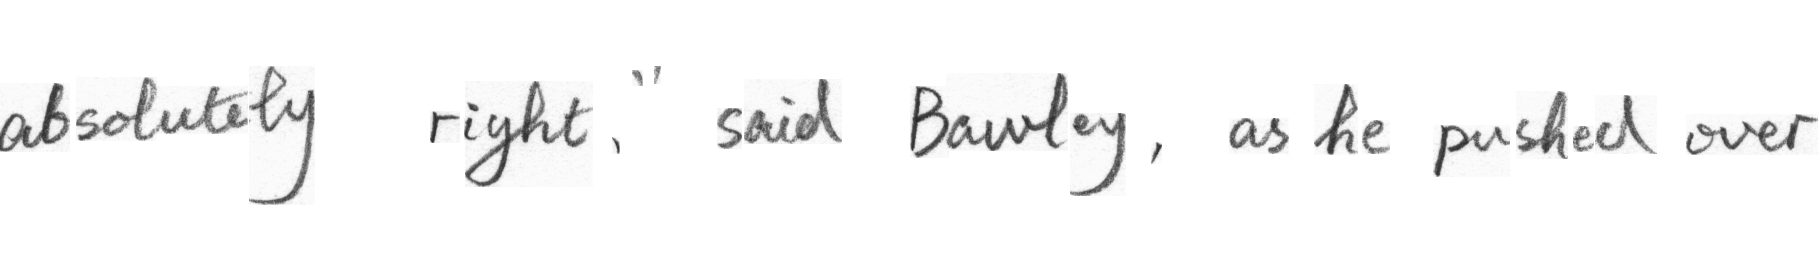 absolutely right," said Bawley, as he pushed over